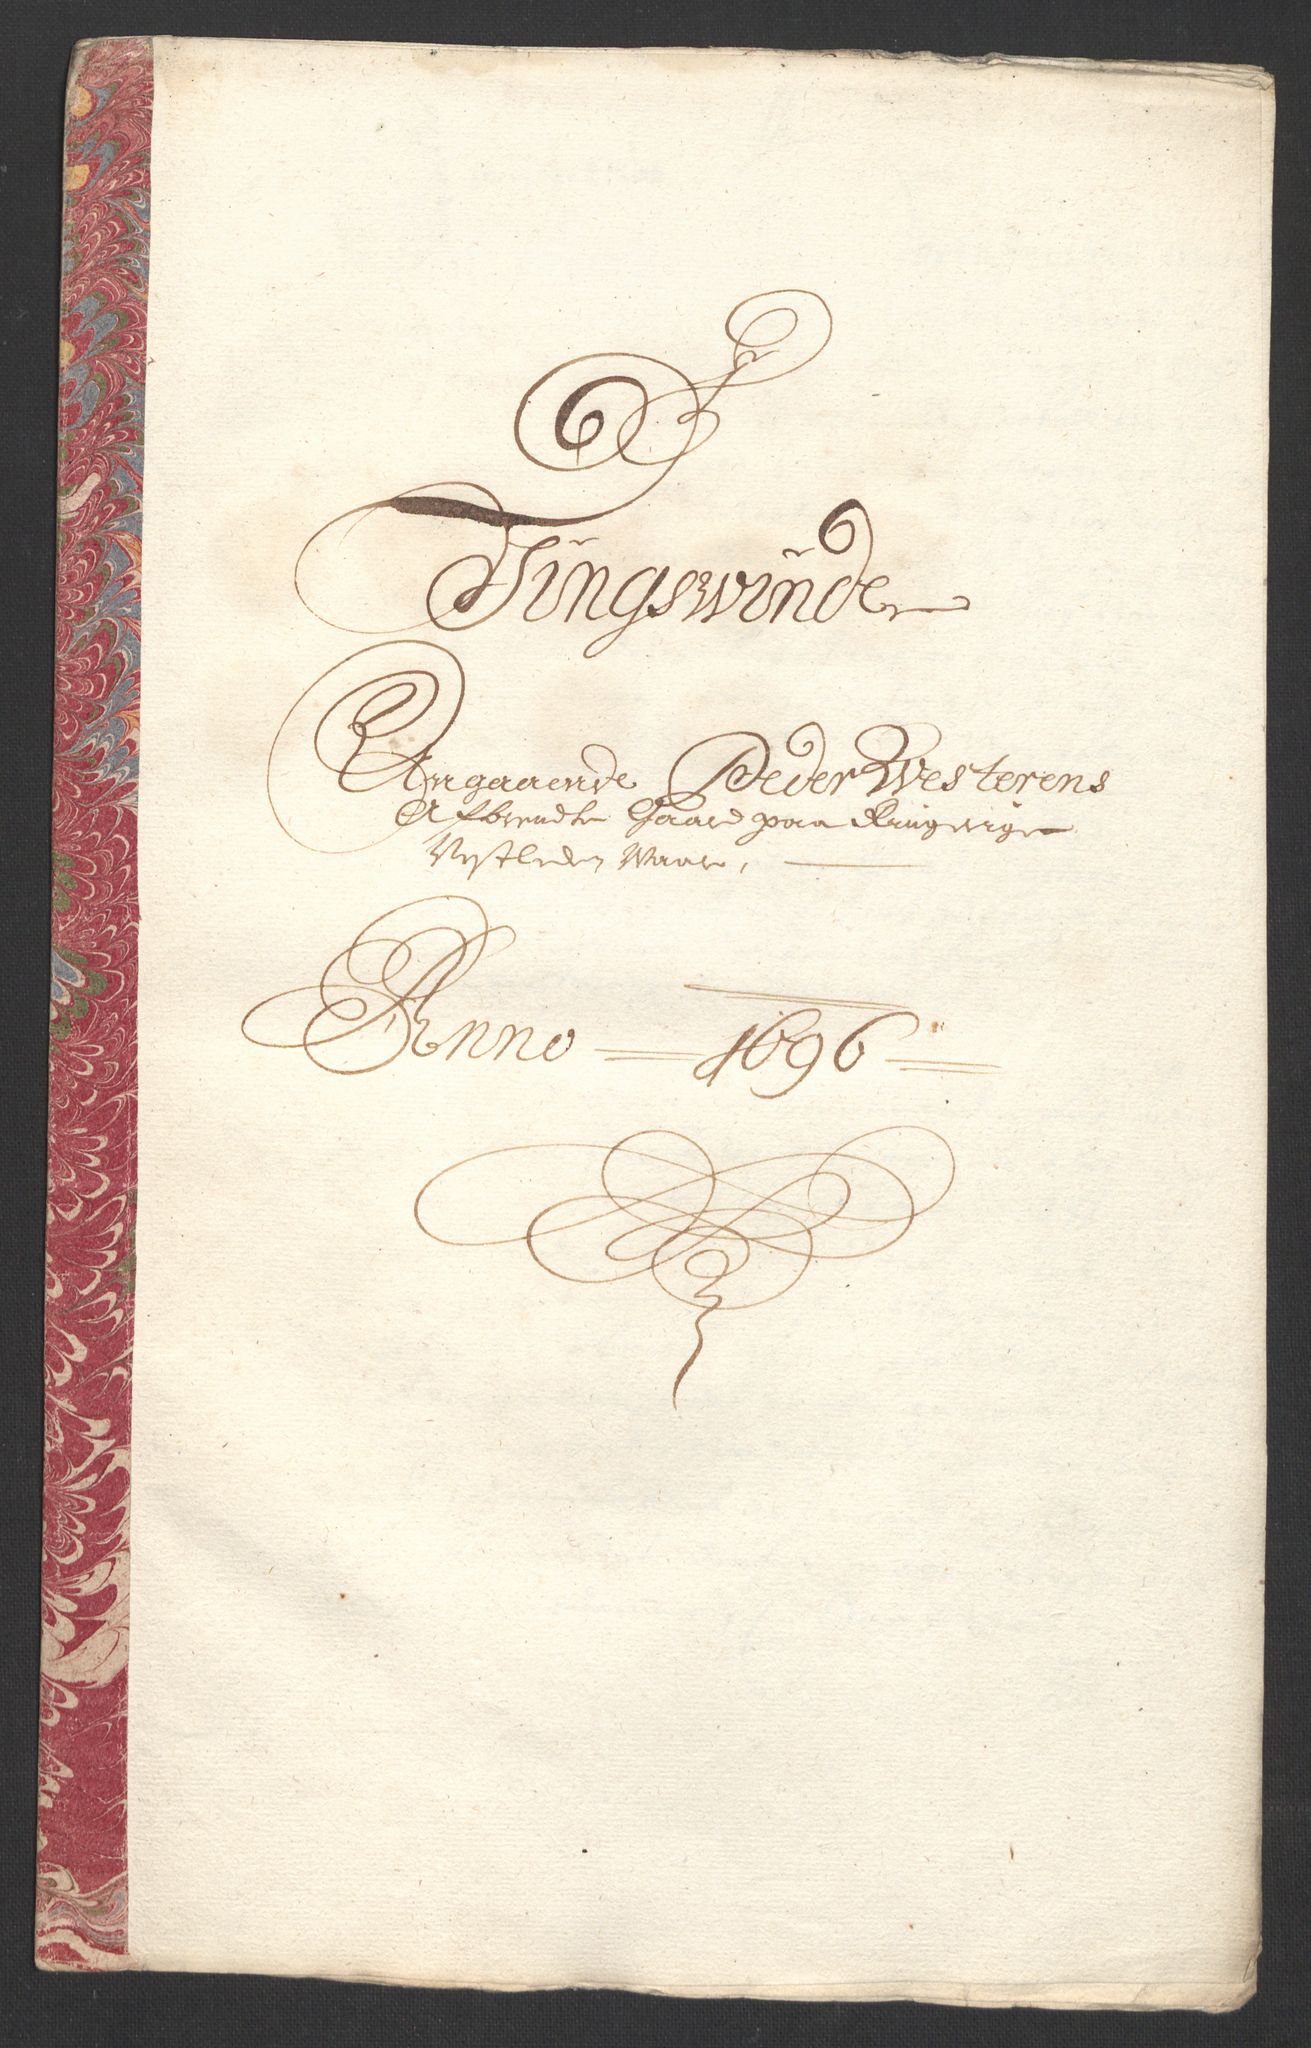 Tingswinde
Angaaende Peder Westerens
Afbrendte Gaard paa Ringerige
Waar,
Anno 1696